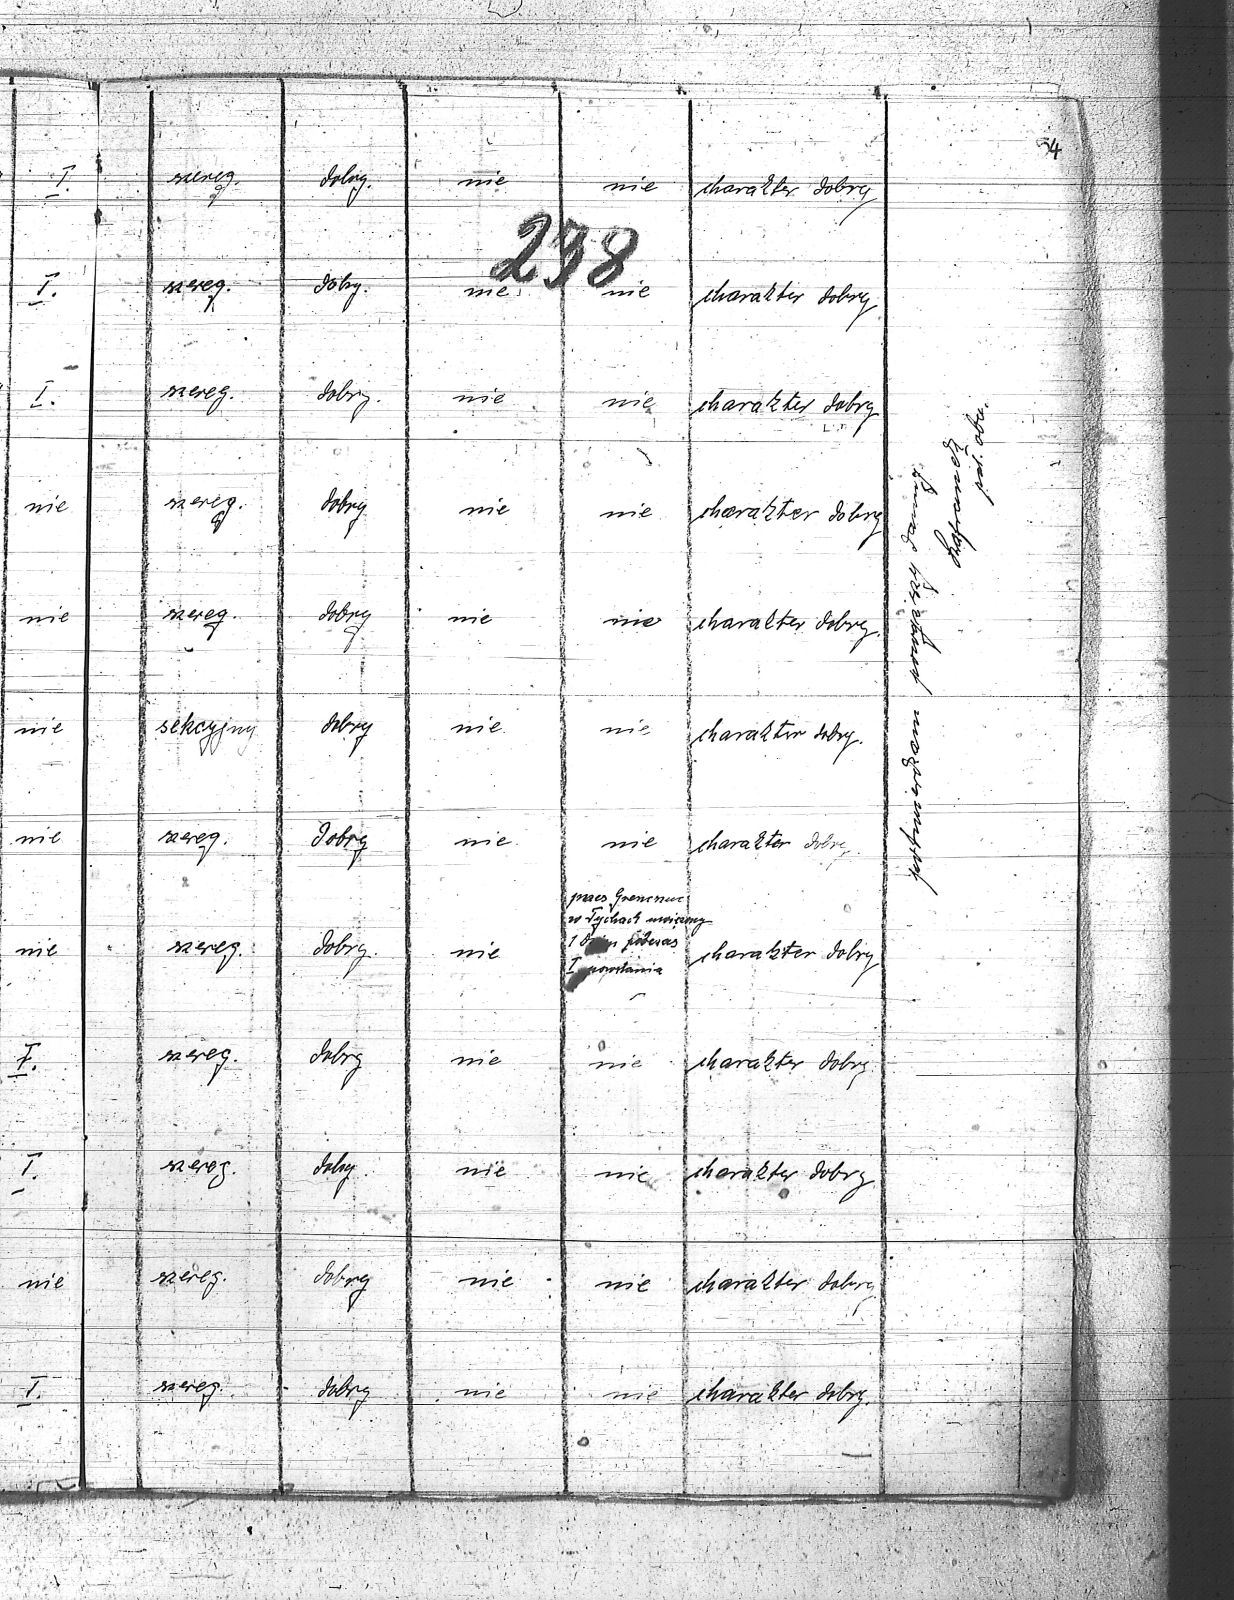 54
I. szereg. dobry. nie nie charakter dobry
238
I. szereg. dobry. nie. nie charakter dobry.
I. szereg. dobry. nie nie charakter dobry
nie szereg. dobry nie nie charakter dobry
nie szereg. dobry nie nie charakter dobry.
nie sekcyjny dobry nie nie charakter dobry.
nie szereg. dobry nie nie charakter dobry.
przez Grencszuc
w Tychach
1
I powstania
nie szereg. dobry. nie charakter dobry
I. szereg. dobry nie nie charakter dobry.
I. szereg. dobry. nie nie charakter dobry
nie szereg. dobry nie nie charakter dobry
I. szereg. dobry nie nie charakter dobry.